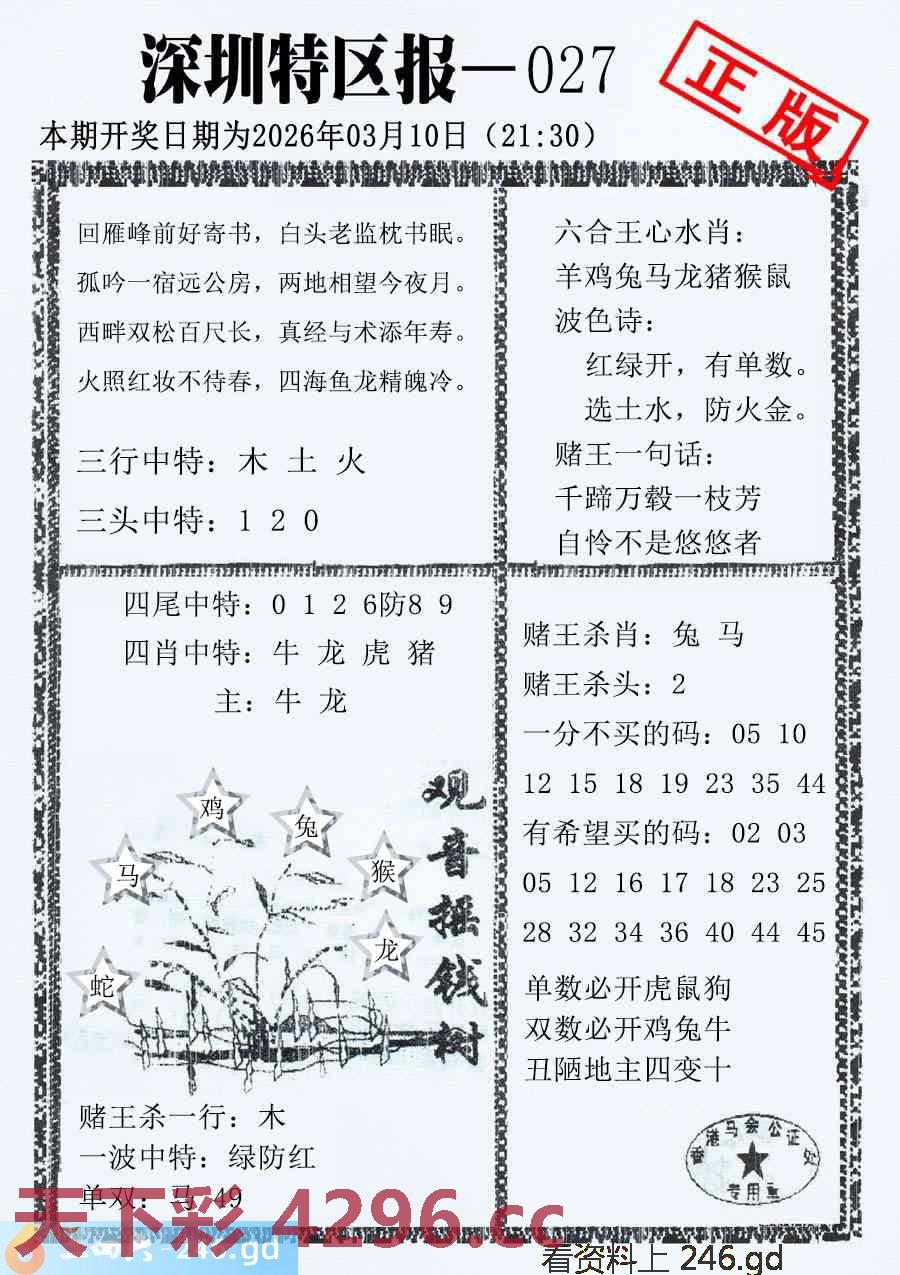 深圳特区报—027
正版
本期开奖日期为2026年03月10日（21:30）
回雁峰前好寄书，白头老监枕书眠。
孤吟一宿远公房，两地相望今夜月。
西畔双松百尺长，真经与术添年寿。
火照红妆不待春，四海鱼龙精魄冷。
三行中特：木 土 火
三头中特：1 2 0
六合王心水肖：
羊鸡兔马龙猪猴鼠
波色诗：
红绿开，有单数。
选土水，防火金。
赌王一句话：
千蹄万毂一枝芳
自怜不是悠悠者
四尾中特：0 1 2 6防8 9
四肖中特：牛 龙 虎 猪
主：牛 龙
鸡
兔
马
猴
龙
蛇
观音摇钱树
赌王杀一行：木
一波中特：绿防红
单双：马 49
赌王杀肖：兔 马
赌王杀头：2
一分不买的码：05 10
12 15 18 19 23 35 44
有希望买的码：02 03
05 12 16 17 18 23 25
28 32 34 36 40 44 45
单数必开虎鼠狗
双数必开鸡兔牛
丑陋地主四变十
香港马会公证处
专用章
天下彩 4296.cc
246.gd
看资料上 246.gd